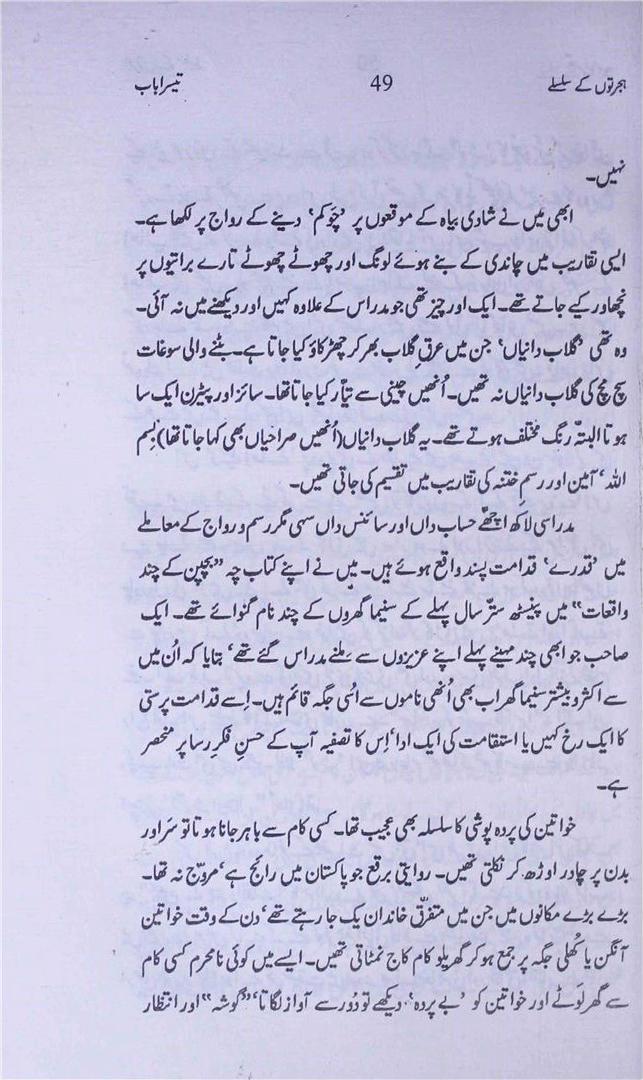 ہجرتوں کے سلسلے 49 تیسرا باب
نہیں۔
ابھی میں نے شادی بیاہ کے موقعوں پر ’چَوکم‘ دینے کے رواج پر لکھا ہے۔
ایسی تقاریب میں چاندی کے بنے ہوئے لونگ اور چھوٹے چھوٹے تارے براتیوں پر
نچھاور کیے جاتے تھے۔ ایک اور چیز تھی جو مدراس کے علاوہ کہیں اور دیکھنے میں نہ آئی۔
وہ تھی ’گلاب دانیاں‘ جن میں عرقِ گلاب بھر کر چھڑکاؤ کیا جاتا ہے۔ بٹنے والی سوغات
سچ مچ کی گلاب دانیاں نہ تھیں۔ اُنھیں چینی سے تیّار کیا جاتا تھا۔ سائز اور پیٹرن ایک سا
ہوتا البتہّ رنگ مختلف ہوتے تھے۔ یہ گلاب دانیاں (اُنھیں صراحیاں بھی کہا جاتا تھا) بِسم
اللہ‘ آمین اور رسمِ ختنہ کی تقاریب میں تقسیم کی جاتی تھیں۔
مدراسی لاکھ اچھّے حساب داں اور سائنس داں سہی مگر رسم و رواج کے معاملے
میں ’قدرے‘ قدامت پسند واقع ہوئے ہیں۔ میں نے اپنے کتاب چہ ”بچپن کے چند
واقعات“ میں پینسٹھ ستّر سال پہلے کے سنیما گھروں کے چند نام گنوائے تھے۔ ایک
صاحب جو ابھی چند مہینے پہلے اپنے عزیزوں سے مِلنے مدراس گئے تھے‘ بتایا کہ اُن میں
سے اکثر و بیشتر سنیما گھر اب بھی اُنھی ناموں سے اُسی جگہ قائم ہیں۔ اِسے قدامت پرستی
کا ایک رخ کہیں یا استقامت کی ایک ادا‘ اِس کا تصفیہ آپ کے حسنِ فکرِ رسا پر منحصر
ہے۔
خواتین کی پردہ پوشی کا سلسلہ بھی عجیب تھا۔ کسی کام سے باہر جانا ہوتا تو سَر اور
بدن پر چادر اوڑھ کر نکلتی تھیں۔ روایتی برقع جو پاکستان میں رائج ہے‘ مروّج نہ تھا۔
بڑے بڑے مکانوں میں جن میں متفرّق خاندان یک جا رہتے تھے‘ دن کے وقت خواتین
آنگن یا کُھلی جگہ پر جمع ہو کر گھریلو کام کاج نمٹاتی تھیں۔ ایسے میں کوئی نامحرم کسی کام
سے گھر لَوٹے اور خواتین کو ’بے پردہ‘ دیکھے تو دُور سے آواز لگاتا‘ ”گوشہ“ اور انتظار